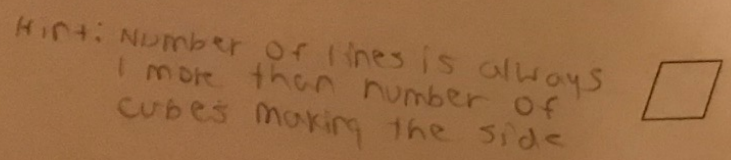 Hint: Number of lines is always
1 more than number of
cubes making the side